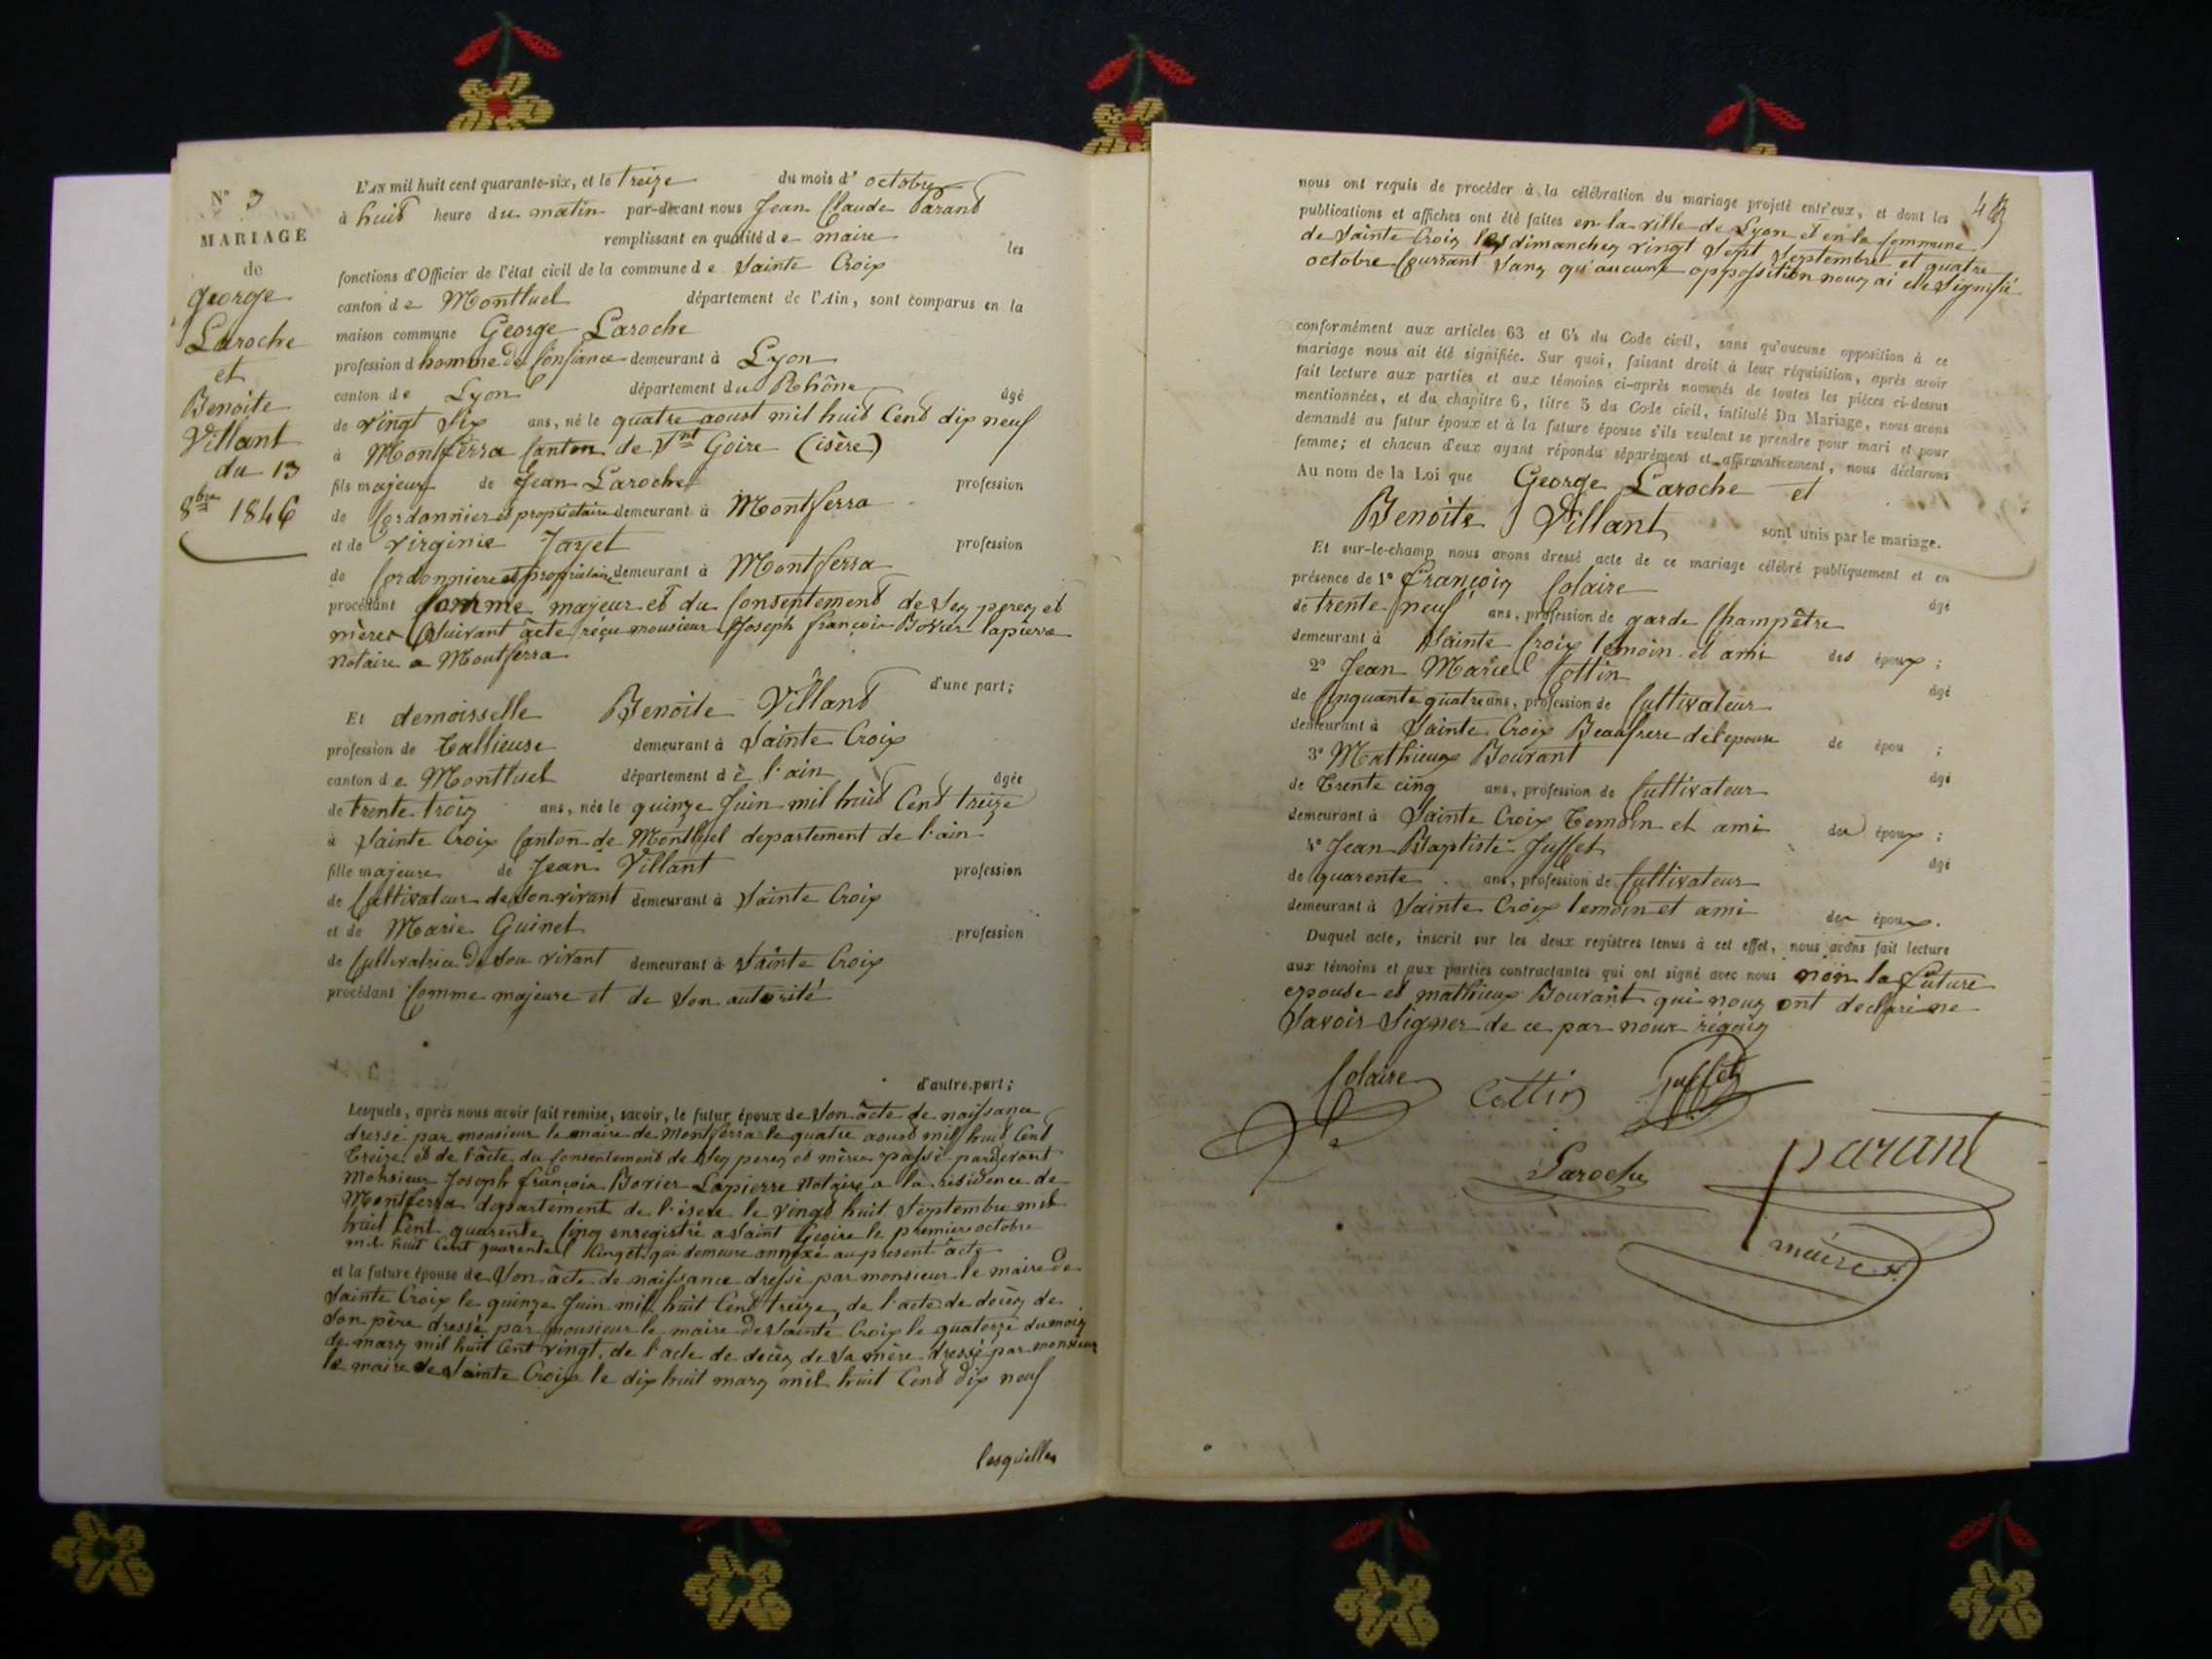 N° 3
MARIAGE
de
George
Laroche
et
Benoite
Villant
du 13
8bre 1846
L'AN mil huit cent quarante-six, et le treize du mois d' octobre
à huit heure du matin par-devant nous Jean Claude Parant
remplissant en qualité de maire les
fonctions d'Officier de l'état civil de la commune de Sainte Croix
canton de Montluel département de l'Ain, sont comparus en la
maison commune George Laroche
profession d homme de Confiance demeurant à Lyon
canton de Lyon département du Rhône âgé
de vingt six ans, né le quatre aoust mil huit Cent dix neuf
à Montferra Canton de Snt Goire (isère)
fils majeur de Jean Laroche profession
de Cordonnier et propriétaire demeurant à Montferra
et de Virginie Jayet profession
de Cordonniere et propriétaire demeurant à Montferra
procédant Comme majeur et du Consentement de Ses peres et
mères Suivant âcte réçu monsieur Joseph françois Bovier lapierre
Notaire a Montferra
d'une part;
Et demoisselle Benoite Villant
profession de Tallieuse demeurant à Sainte Croix
canton de Montluel département de l'ain âgée
de trente trois ans, née le quinze Juin mil huit Cent treize
à Sainte Croix Canton de Montluel departement de l'ain
fille majeure de Jean Villant profession
de Cultivateur de Son vivant demeurant à Sainte Croix
et de Marie Guinet profession
de Cultivatrice de Son vivant demeurant à Sainte Croix
procédant Comme majeure et de Son autorité
d'autre part;
Lesquels, après nous avoir fait remise, savoir, le futur époux de Son âcte de naissance
dressé par monsieur le maire de Montferra le quatre aoust mil huit Cent
treize et de l'âcte du Consentement de Ses peres et mères passé pardevant
Monsieur Joseph françois Bovier Lapierre Notaire a la residence de
Montferra departement de l'isere le vingt huit Septembre mil
huit Cent quarente Cinq enregistré a Saint Geoire le premier octobre
mil huit Cent quarente qui demeure annexé au present âcte
et la future épouse de Son âcte de naissance dressé par monsieur le maire de
Sainte Croix le quinze Juin mil huit Cent treize, de l'acte de décès de
Son père dressé par monsieur le maire de Sainte Croix le quatorze du mois
de mars mil huit Cent vingt, de l'acte de décès de Sa mère dressé par monsieur
le maire de Sainte Croix le dix huit mars mil huit Cent dix neuf
lesquelles
nous ont requis de procéder à la célébration du mariage projeté entr'eux, et dont les
publications et affiches ont été faites en la ville de Lyon et en la Commune
de Sainte Croix les dimanches vingt Sept Septembre et quatre
octobre Courrant Sans qu'aucune oppossition nous ai été Signifié
conformément aux articles 63 et 64 du Code civil, sans qu'aucune opposition à ce
mariage nous ait été signifiée. Sur quoi, faisant droit à leur réquisition, après avoir
fait lecture aux parties et aux témoins ci-après nommés de toutes les pièces ci-dessus
mentionnées, et du chapitre 6, titre 5 du Code civil, intitulé Du Mariage, nous avons
demandé au futur époux et à la future épouse s'ils veulent se prendre pour mari et pour
femme; et chacun d'eux ayant répondu séparément et affirmativement, nous déclarons
Au nom de la Loi que George Laroche et
Benoite Villant sont unis par le mariage.
Et sur-le-champ nous avons dressé acte de ce mariage célébré publiquement et en
présence de 1° François Colaire âgé
de trente neuf ans, profession de garde Champêtre
demeurant à Sainte Croix temoin et ami des époux;
2° Jean Marie Cottin âgé
de Cinquante quatre ans, profession de Cultivateur
demeurant à Sainte Croix Beaufrere de l'epouse de épou ;
3° Mathieux Bouvant âgé
de Trente cinq ans, profession de Cultivateur
demeurant à Sainte Croix Temoin et ami des époux;
4° Jean Baptiste Juffet âgé
de quarente ans, profession de Cultivateur
demeurant à Sainte Croix temoin et ami des époux.
Duquel acte, inscrit sur les deux registres tenus à cet effet, nous avons fait lecture
aux témoins et aux parties contractantes qui ont signé avec nous non la future
epouse et mathieux Bouvant qui nous ont declaré ne
Savoir Signer de ce par nous régúis
Colaire Cottin Juffet
Laroche parant
maire